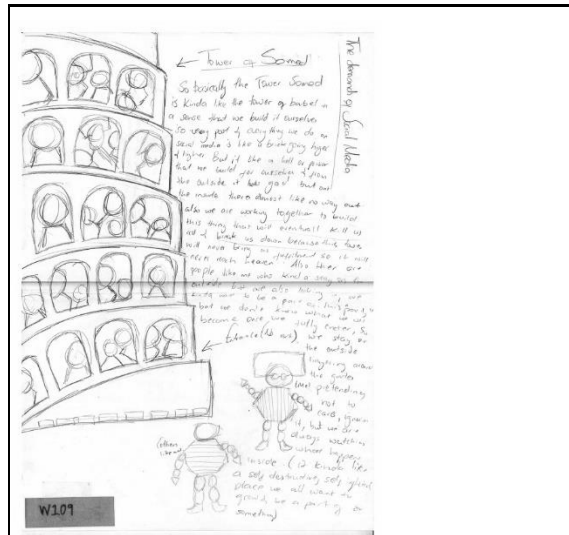 The demands of Social Media
Tower of Somed
So basically the Tower Somed
is kinda like the tower of barbel in
a sense that we build it ourselves
so every part of everything we do on
social media is like a brick going higer
& higher. But it like a hell or prison
that we build for ourselves & from
the outside it looks good but on
the inside there almost like no way out
also we are working together to build
this thing that will eventually kill us
all & break us down because this tower
will never bring us so it will
never reach heaven. Also there are
people like me who kind a stay on the
outside but we also
to be a part of this
but we don't know what we will
become once we fully enter, So
we stay on
the outside
this
and pretending
not to
it, but we are
always watching
what happens
inside. ( is kinda like
a self destructing self
place we all want to
be a part of or
something)
(others
W109